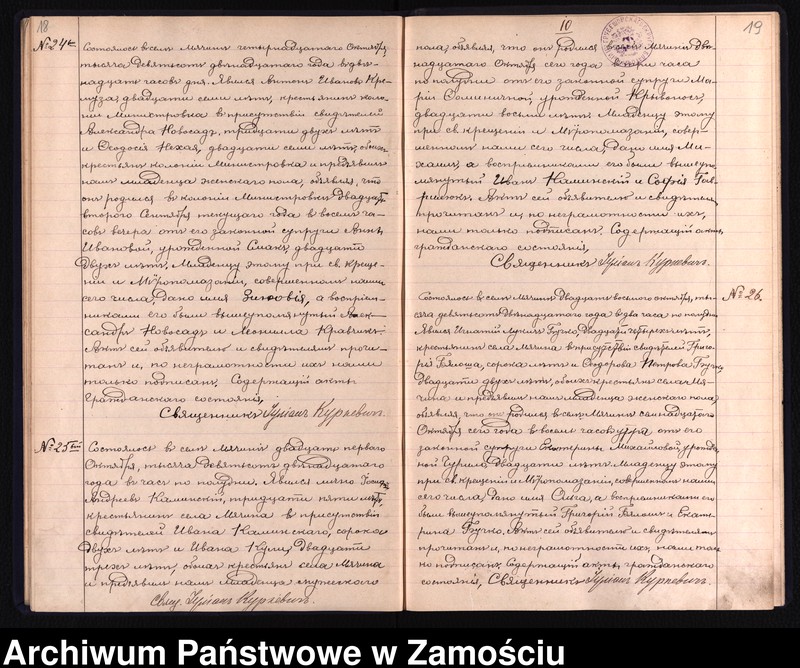 18
№ 24й
Состоялось въ селѣ Мягкимъ четырнадцатаго Октября
тысяча девятьсотъ двѣнадцатаго года въ двѣ-
надцать часовъ дня. Явился Антонъ Ивановъ Кре-
муза, двадцати семи лѣтъ, крестьянинъ коло-
ніи Министровка въ присутствіи свидѣтелей
Александра Новосадъ, тридцати двухъ лѣтъ
и Ѳеодосія двадцати семи лѣтъ, обоихъ
крестьянъ колоніи Министровка и предъявилъ
намъ младенца женскаго пола, объявляя, что
онъ родился въ колоніи Министровка двадцать
второго Сентября текущаго года въ восемь ча-
совъ вечера отъ его законной супруги Анны
Ивановой, урожденной двадцати
двухъ лѣтъ. Младенцу этому при св. креще-
ніи и Мѵропомазаніи, совершенномъ нами
сего числа, дано имя Зиновія, а воспріем-
никами его были вышеупомянутый Алек-
сандръ Новосадъ и Леонила Кравчикъ.
Актъ сей объявителю и свидѣтелямъ прочи-
танъ и, по неграмотности ихъ нами
только подписанъ. Содержащій акты
гражданскаго состоянія,
Священникъ Іуліанъ Куркевичъ.
№ 25ый
Состоялось въ селѣ двадцать перваго
Октября, тысяча девятьсотъ двѣнадцатаго
года въ часъ по полудни. Явился лично
Андреевъ Калинскій, тридцати пяти лѣтъ,
крестьянинъ села въ присутствіи
свидѣтелей Ивана Калинскаго, сорока
двухъ лѣтъ и Ивана Кулика, двадцати
трехъ лѣтъ, обоихъ крестьянъ села
и предъявилъ намъ младенца мужескаго
Свящ. Іуліанъ Куркевичъ.
10
19
пола, объявляя, что онъ родился въ селѣ два-
надцатаго Октября сего года въ три часа
по полудни отъ его законной супруги Ма-
ріи урожденной
двадцати восьми лѣтъ. Младенцу этому
при св. крещеніи и Мѵропомазаніи, совер-
шенномъ нами сего числа, дано имя Ми-
хаилъ, а воспріемниками его были вышеупо-
мянутый Иванъ Калинскій и Софія Гав-
Актъ сей объявителю и свидѣтелямъ
прочитанъ и, по неграмотности ихъ,
нами только подписанъ. Содержащій акты
гражданскаго состоянія,
Священникъ Іуліанъ Куркевичъ.
№ 26.
Состоялось въ селѣ двадцать восьмого октября, ты-
сяча девятьсотъ двѣнадцатаго года въ два часа по полудни.
Явился Игнатій Лукинъ Гучко, двадцати четырехъ лѣтъ,
крестьянинъ села въ присутствіи свидѣтелей Григо-
рія сорока лѣтъ и Сидорова Петрова Гучко
двадцати двухъ лѣтъ, обоихъ крестьянъ села
и предъявилъ намъ младенца женскаго пола,
объявляя, что онъ родился въ селѣ семнадцатаго
Октября сего года въ восемь часовъ утра отъ его
законной супруги Екатерины Михайловой, урожден-
ной двадцати лѣтъ. Младенцу этому
при св. крещеніи и Мѵропомазаніи, совершенномъ нами
сего числа, дано имя Ольга, а воспріемниками его
были вышеупомянутый Григорій и Екате-
рина Гучко. Актъ сей объявителю и свидѣтелямъ
прочитанъ и, по неграмотности ихъ, нами толь-
ко подписанъ. Содержащій акты гражданскаго
состоянія, Священникъ Іуліанъ Куркевичъ.
Archiwum Państwowe w Zamościu